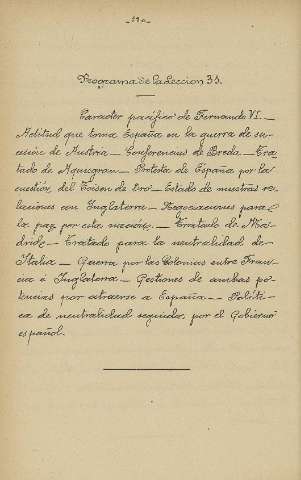 Programa de la Leccion 33.
Caracter pacífico de Fernando VI.—
Actitud que toma España en la guerra de su-
cesión de Austria — Conferencias de Breda — Tra-
tado de Aquisgran — Protesta de España por la
cuestión del Toison de Oro — Estado de nuestras re-
laciones con Inglaterra — Negociaciones para
la paz por esta nación — Tratado de Ma-
drid — Tratado para la neutralidad de
Italia — Guerra por las Colonias entre Fran-
cia é Inglaterra — Gestiones de ambas po-
tencias por atraerse a España — Políti-
ca de neutralidad seguida, por el Gobierno
español.